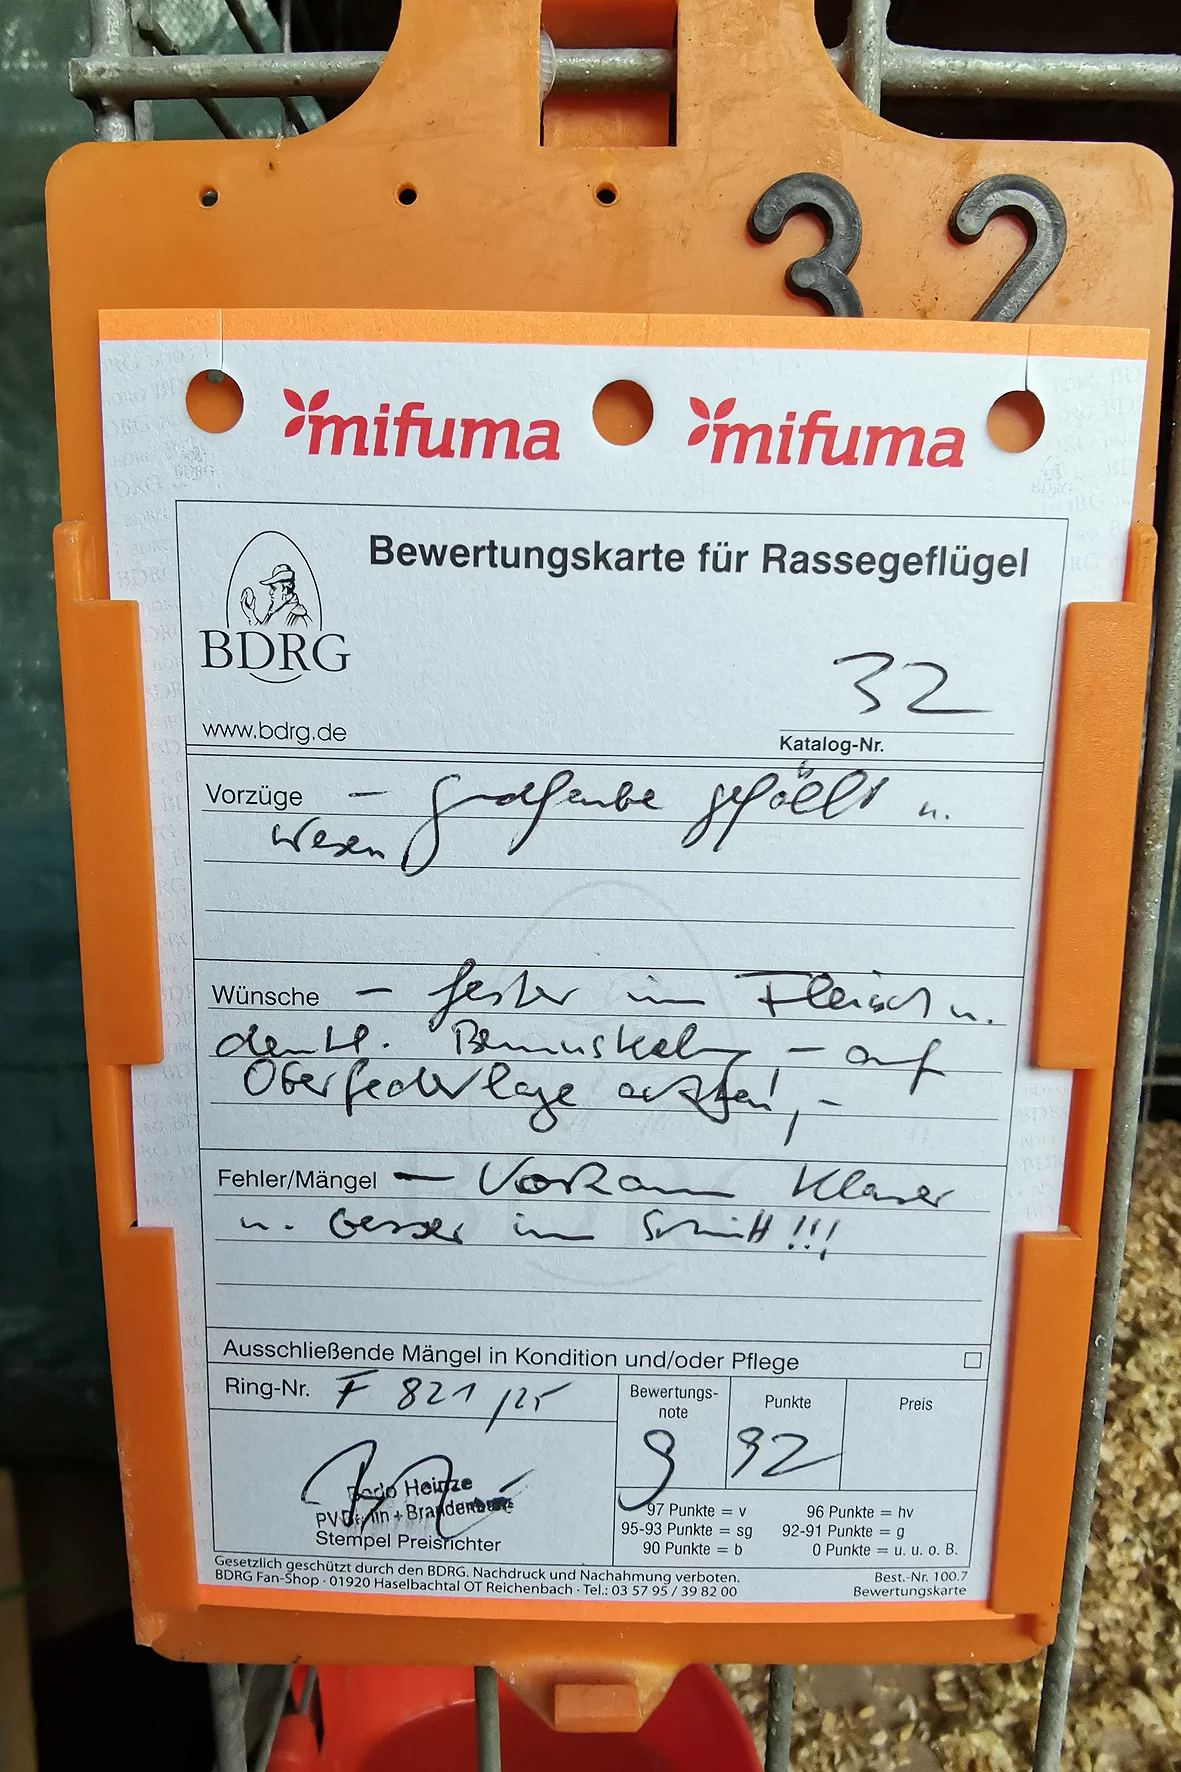 32
mifuma mifuma
Bewertungskarte für Rassegeflügel
BDRG
www.bdrg.de
32
Katalog-Nr.
Vorzüge – gefällt u.
Wesen
Wünsche – fester im Fleisch u.
deutl. – auf
Oberfederlage achten!, –
Fehler/Mängel – klarer
u. besser im Schnitt!!!
Ausschließende Mängel in Kondition und/oder Pflege
Ring-Nr. F 821 /25
Bewertungs-
note
Punkte
Preis
g
92
Bodo Heinze
PV Berlin + Brandenburg
Stempel Preisrichter
97 Punkte = v 96 Punkte = hv
95-93 Punkte = sg 92-91 Punkte = g
90 Punkte = b 0 Punkte = u. u. o. B.
Gesetzlich geschützt durch den BDRG. Nachdruck und Nachahmung verboten.
BDRG Fan-Shop · 01920 Haselbachtal OT Reichenbach · Tel.: 03 57 95 / 39 82 00
Best.-Nr. 100.7
Bewertungskarte